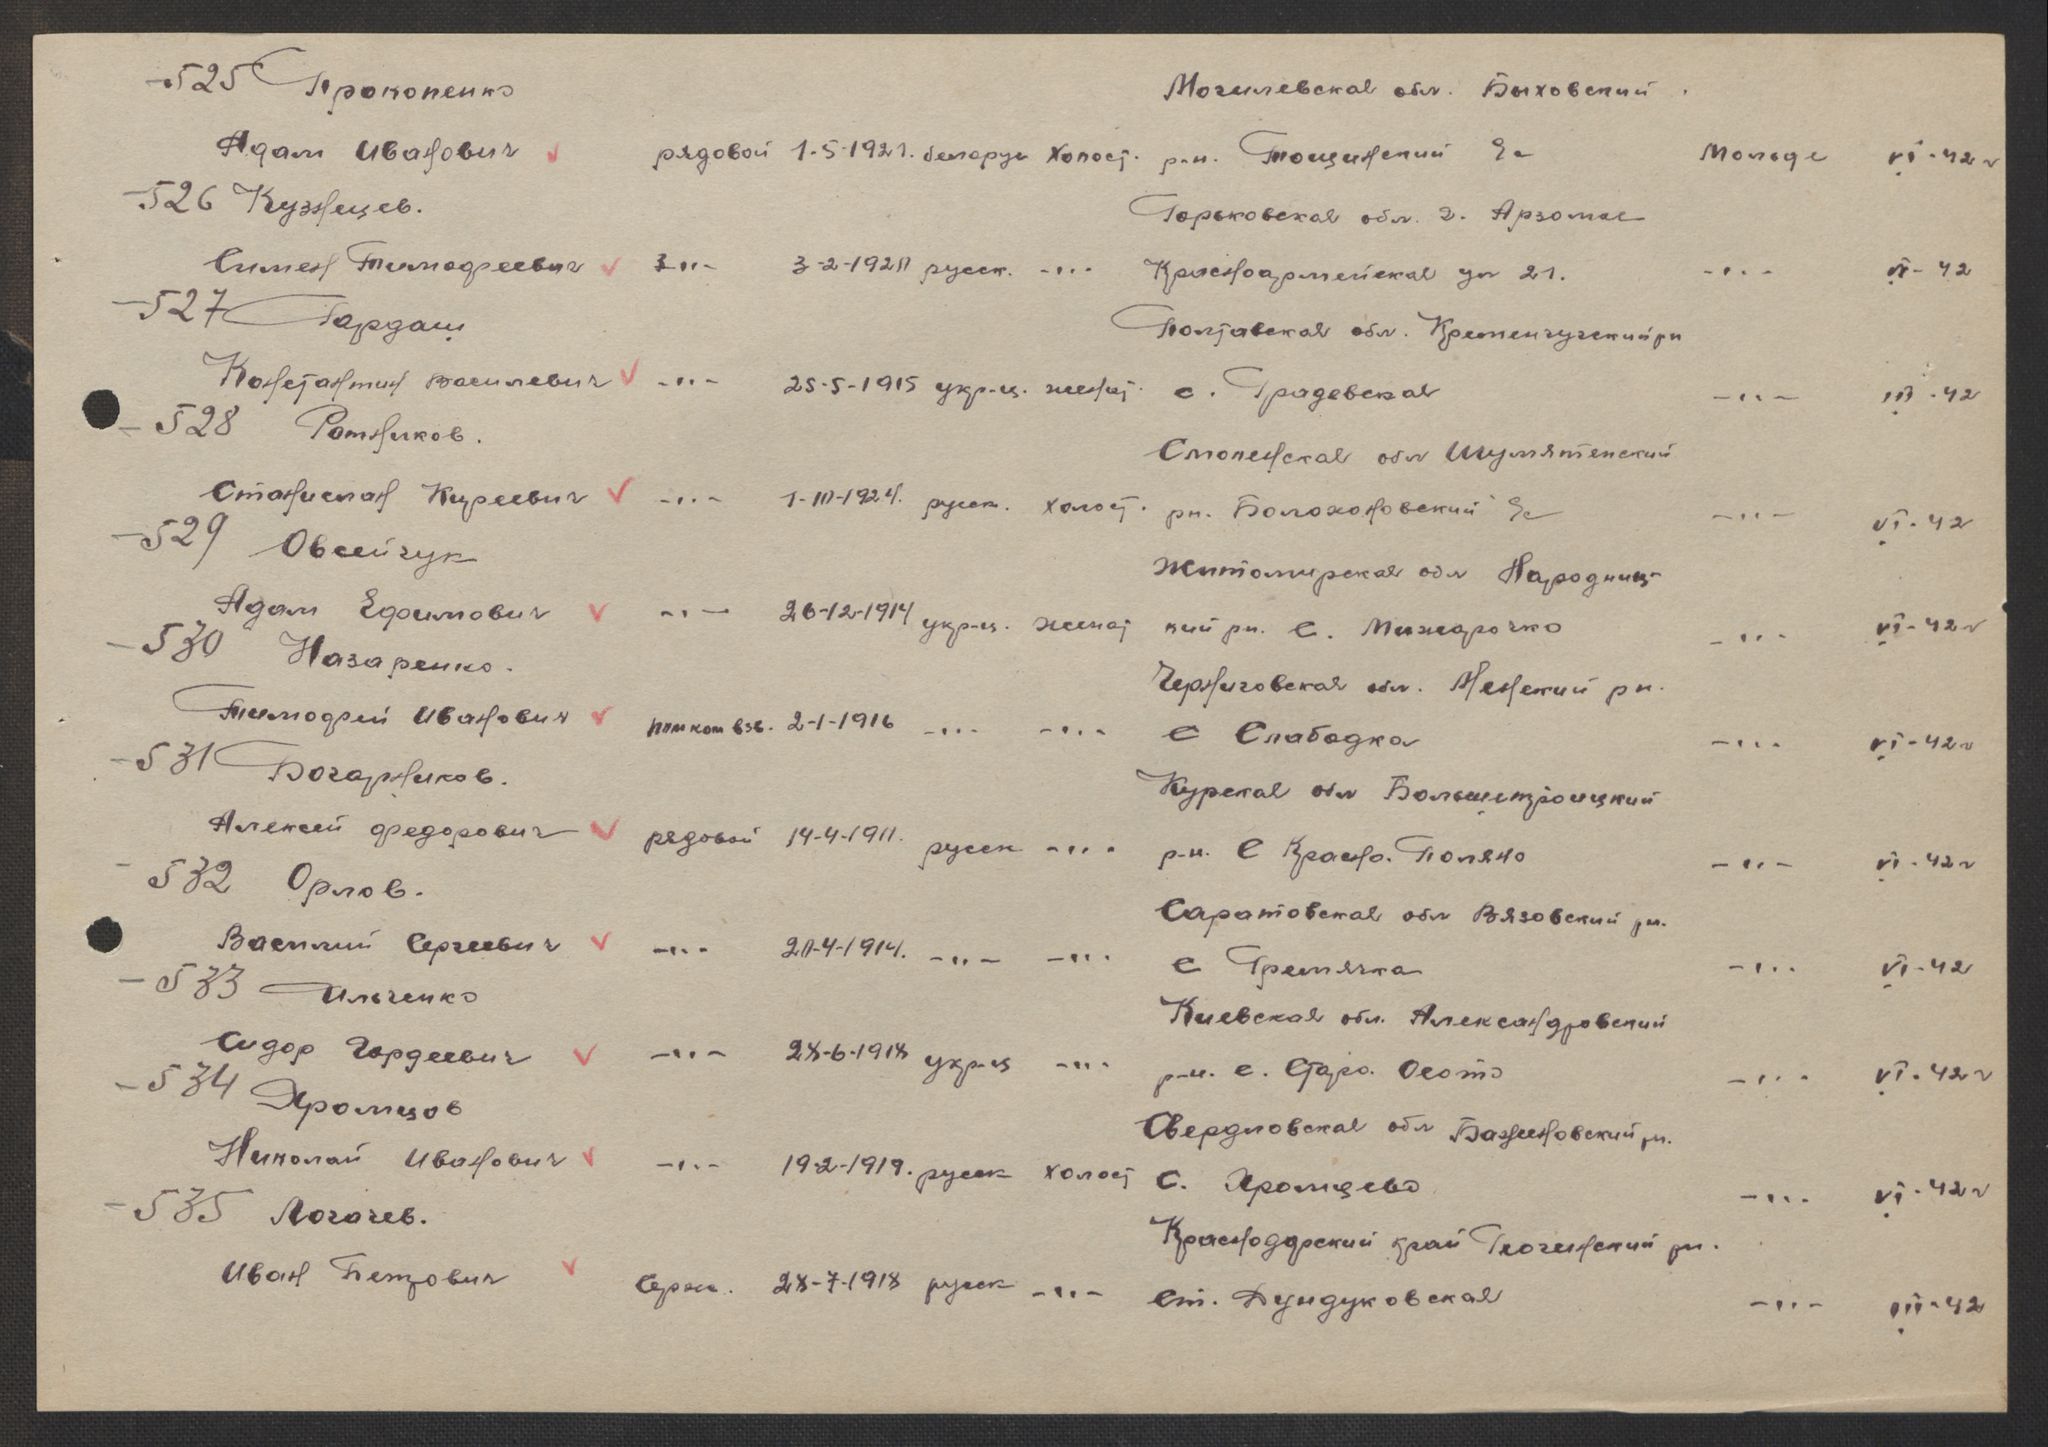 -525 Прокопенко Могилевская обл. Быховский
Адам Иванович ✓ рядовой 1-5-1921. беларус холост. р-н. Тощинский с/с Мольде VI-42 г
-526 Кузнецев. Горьковская обл. г. Арзомас
Симен Тимофреевич ✓ -"- 3-2-1920 русск. -"- Красноармейская ул 21. -"- VI-42
-527 Гардащ Полтавская обл. Кременчугский рн
Константин Василевич ✓ -"- 25-5-1915 укр-ц. женат. с. Градевская -"- III-42
-528 Ротников. Смоленская обл Шумятенский
Станислав Киреевич ✓ -"- 1-10-1924. русск. холост. рн. Болохоновский с/с -"- VI-42
-529 Овсейчук Житомирская обл Народниц-
Адам Ефимович ✓ -"- 26-12-1914 укр-ц. женат кий рн. с. Межарочко -"- VI-42 г
-530 Назаренко. Черниговская обл. Менский рн.
Тимофрей Иванович ✓ помком взв. 2-1-1916 -"- -"- с Слабодка -"- VI-42 г
-531 Бочарников. Курская обл Большетроицкий
Алексей Федорович ✓ рядовой 14-4-1911. русск -"- р-н. с Красно. Поляно -"- VI-42 г
-532 Орлов. Саратовская обл Вязовский рн.
Василий Сергеевич ✓ -"- 20-4-1914. -"- -"- с Гремячка -"- VI-42
-533 Ильченко Киевская обл. Александровский
Сидор Гордеевич ✓ -"- 28-6-1918 укр-ц -"- р-н. с. Старо. Осото -"- VI-42 г
-534 Хромцов Свердловская обл Баженовский рн.
Николай Иванович ✓ -"- 19-2-1919. русск холост с. Хромцево -"- VI-42 г
-535 Логачев. Краснодарский край Гиагинский рн.
Иван Петрович ✓ Серж. 28-7-1918 русск -"- ст. Дундуковская -"- III-42